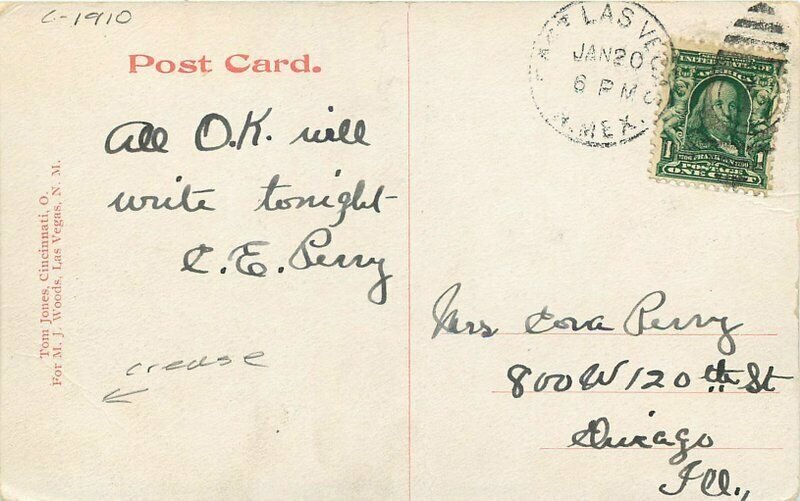 C-1910
Post Card.
All O.K. will
write tonight
C. E. Perry
Tom Jones, Cincinnati, O.
For M. J. Woods, Las Vegas, N. M.
crease
LAS VEG
JAN 20
6 PM
N. MEX.
UNITED STATES OF
AMERICA
1706 FRANKLIN 1790
POSTAGE
1 ONE CENT 1
Mrs Cora Perry
800 W 120th St
Chicago
Ill.,